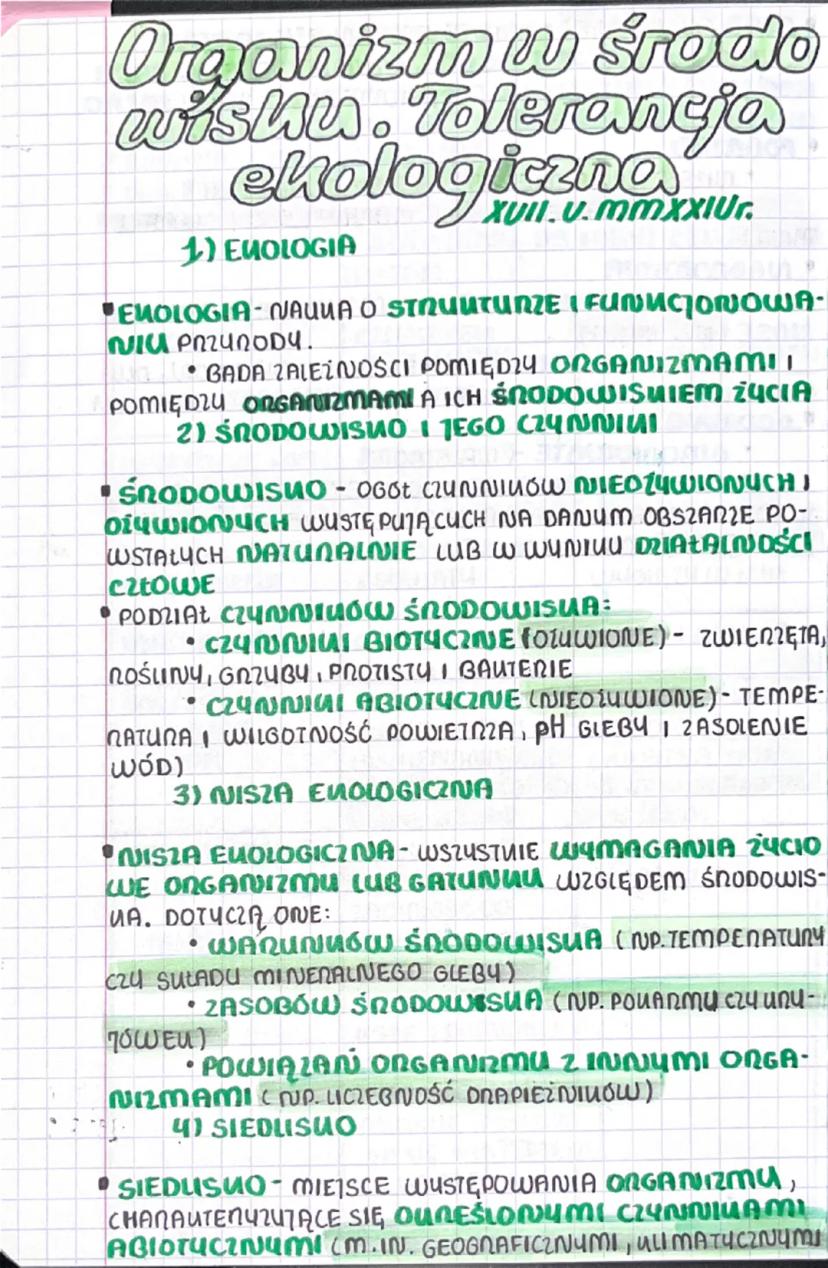 Organizm w środo
wisku. Tolerancja
ekologiczna
XVII.V.MMXXIVr.
1) EKOLOGIA
▪ EKOLOGIA - NAUKA O STRUKTURZE I FUNKCJONOWA-
NIU PRZYRODY.
• BADA ZALEŻNOŚCI POMIĘDZY ORGANIZMAMI I
POMIĘDZY ORGANIZMAMI A ICH ŚRODOWISKIEM ŻYCIA
2) ŚRODOWISKO I JEGO CZYNNIKI
▪ ŚRODOWISKO - OGÓŁ CZYNNIKÓW NIEOŻYWIONYCH I
OŻYWIONYCH WYSTĘPUJĄCYCH NA DANYM OBSZARZE PO-
WSTAŁYCH NATURALNIE LUB W WYNIKU DZIAŁALNOŚCI
CZŁOWE
• PODZIAŁ CZYNNIKÓW ŚRODOWISKA:
• CZYNNIKI BIOTYCZNE (OŻYWIONE) - ZWIERZĘTA,
ROŚLINY, GRZYBY, PROTISTY I BAKTERIE
• CZYNNIKI ABIOTYCZNE (NIEOŻYWIONE) - TEMPE-
RATURA I WILGOTNOŚĆ POWIETRZA, pH GLEBY I ZASOLENIE
WÓD)
3) NISZA EKOLOGICZNA
▪ NISZA EKOLOGICZNA - WSZYSTKIE WYMAGANIA ŻYCIO
WE ORGANIZMU LUB GATUNKU WZGLĘDEM ŚRODOWIS-
KA. DOTYCZĄ ONE:
• WARUNKÓW ŚRODOWISKA (NP. TEMPERATURY
CZY SKŁADU MINERALNEGO GLEBY)
• ZASOBÓW ŚRODOWISKA (NP. POKARMU CZY KRY-
JÓWEK)
• POWIĄZAŃ ORGANIZMU Z INNYMI ORGA-
NIZMAMI (NP. LICZEBNOŚĆ DRAPIEŻNIKÓW)
4) SIEDLISKO
▪ SIEDLISKO - MIEJSCE WYSTĘPOWANIA ORGANIZMU,
CHARAKTERYZUJĄCE SIĘ OKREŚLONYMI CZYNNIKAMI
ABIOTYCZNYMI (M.IN. GEOGRAFICZNYMI, KLIMATYCZNYMI